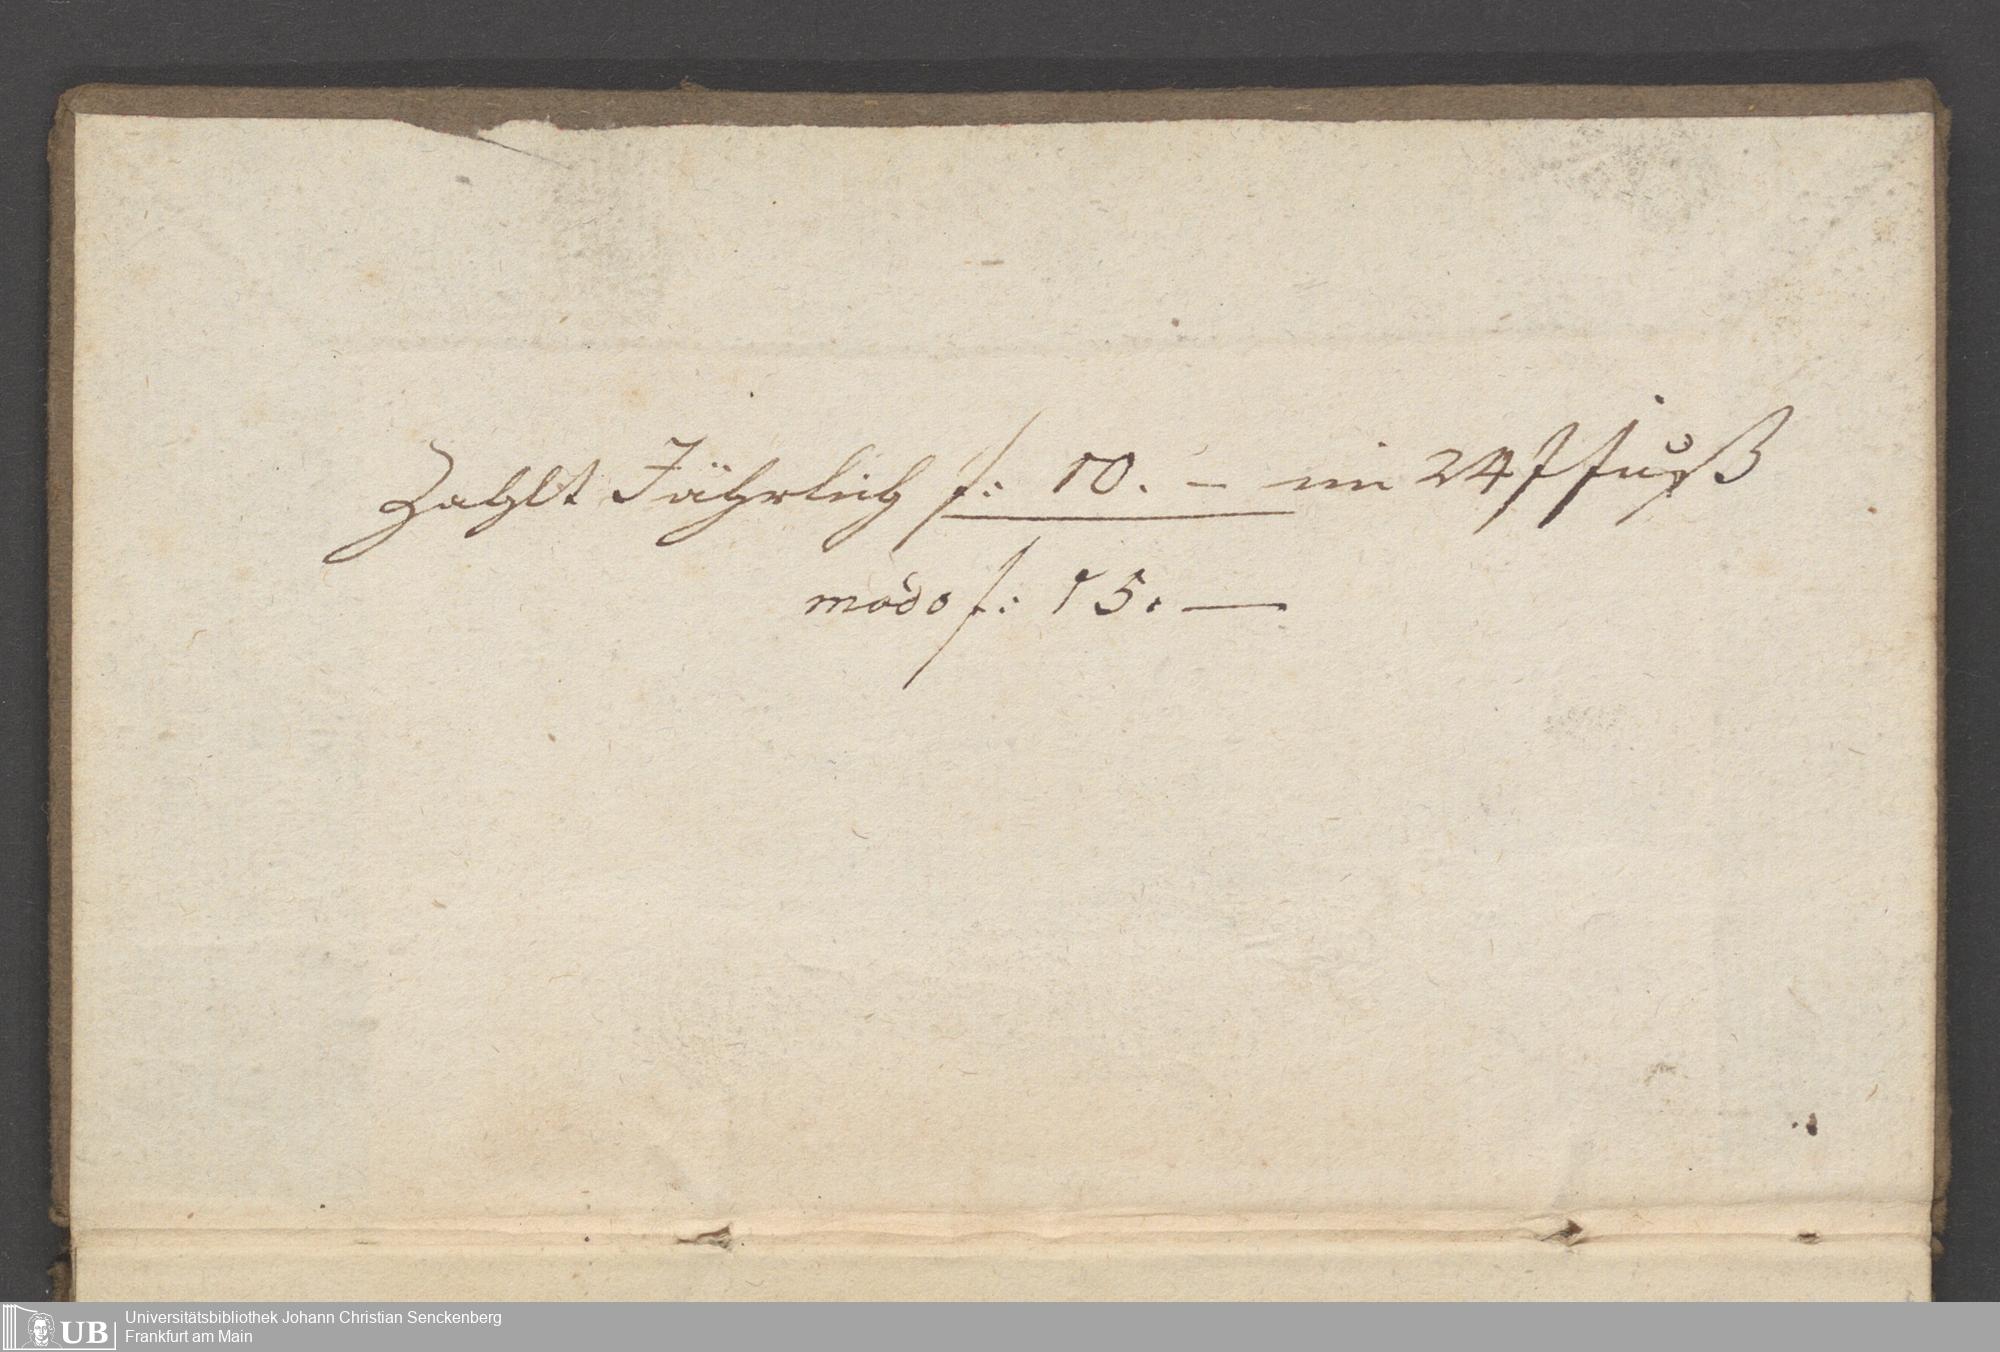 Zahlt Jährlich f: 10. – im 24 f fuß
modo f: 15. —
UB
Universitätsbibliothek Johann Christian Senckenberg
Frankfurt am Main